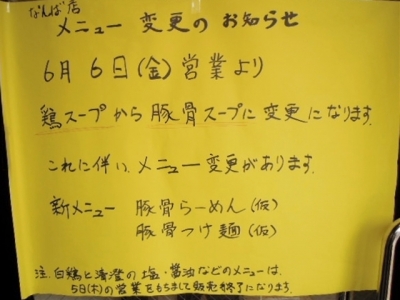 なんば店
メニュー変更のお知らせ
6月6日(金)営業より
鶏スープから豚骨スープに変更になります.
これに伴い、メニュー変更があります.
新メニュー 豚骨らーめん(仮)
豚骨つけ麺(仮)
注. 白鶏と清澄の塩・醤油などのメニューは、
5日(木)の営業をもちまして販売終了になります.